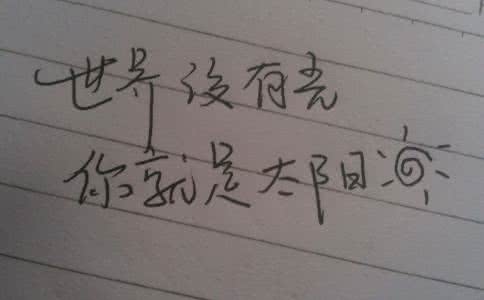 世界没有光
你就是太阳